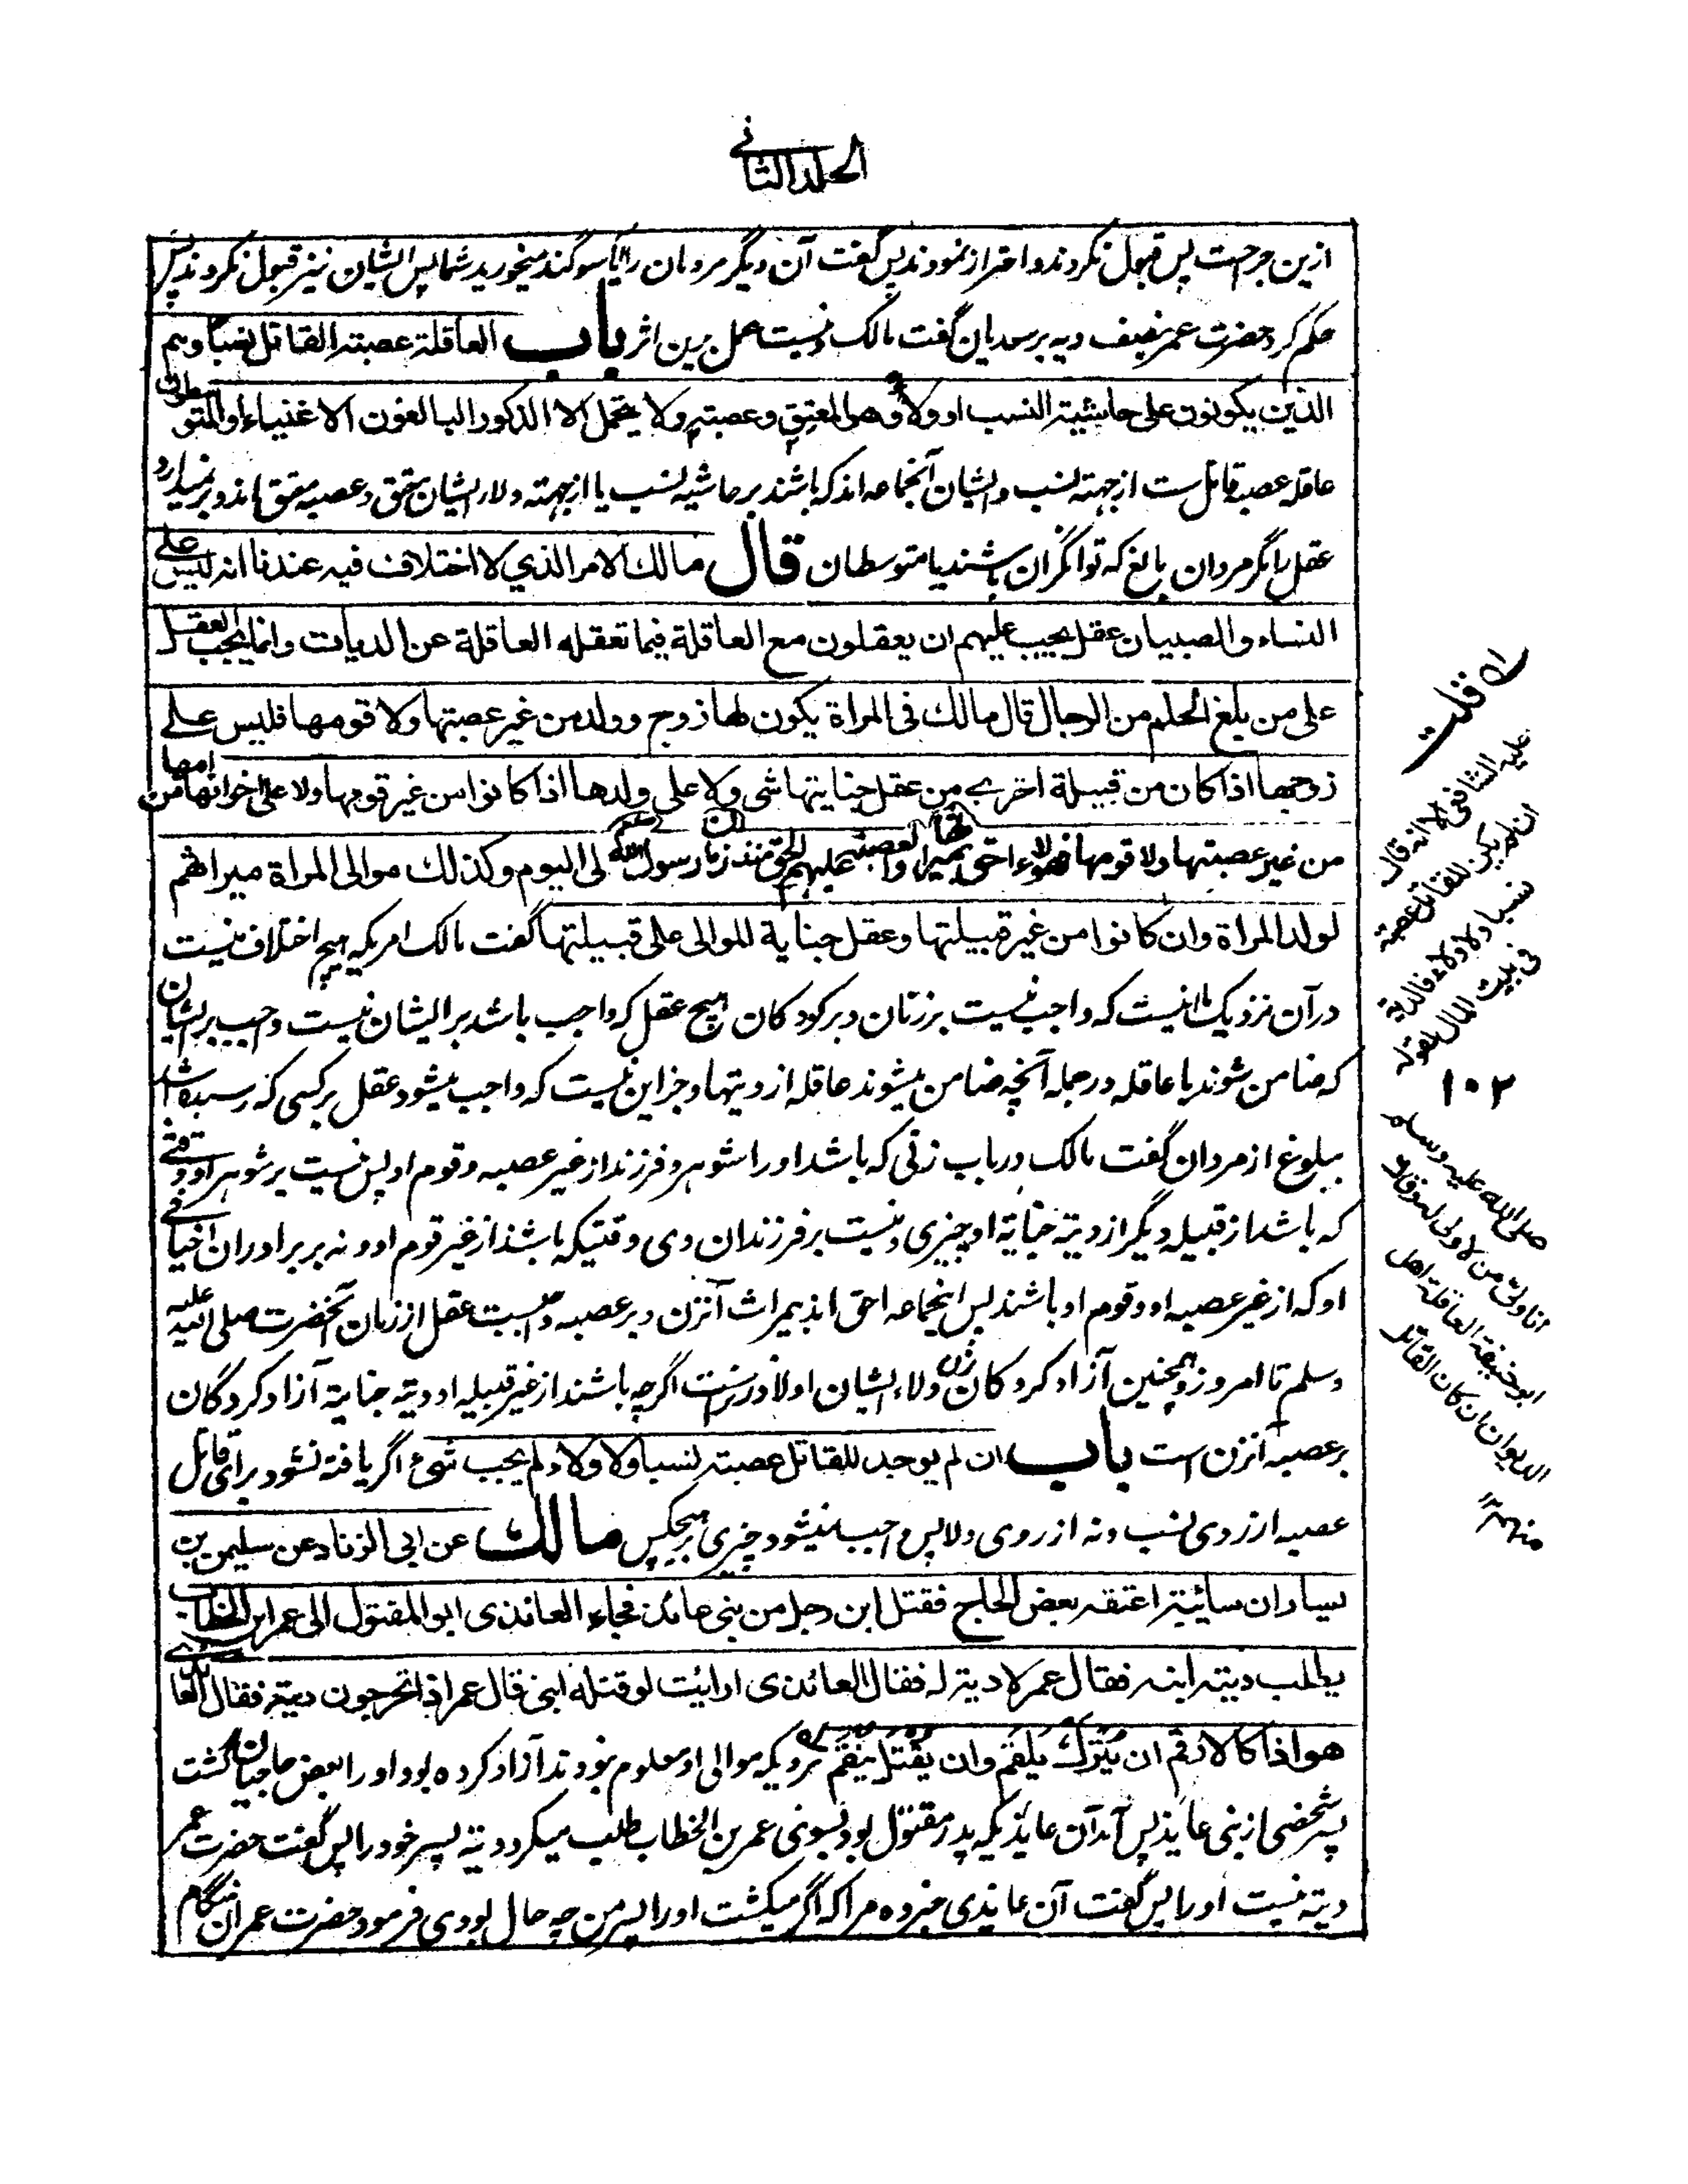 الجلد الثانی
ازین جرحست پس قبول نکردند و احتراز نمودند پس گفت آن دیگر مردمان را آیا سوگند میخورید شما پس ایشان نیز قبول نکردند پس
حکم کرد حضرت عمر بنصف دیه بر سعدیان گفت مالک و نیست عمل برین اثر باب العاقلة عصبته القاتل نسبا وهم
الذین یکونون علی حاشیته النسب او ولاء وهی المعتق وعصبته ولا یتحمل الا الذکور البالغون الاغنیاء او المتوسطون
عاقله عصبه قاتل ست از جهته نسب و ایشان آنجماعه اند که باشند بر حاشیه نسب یا از جهته ولا و ایشان معتق و عصبه معتق اند و بر نمیدارد
عقل را مگر مردان بالغ که توانگران باشند یا متوسطان قال مالك الامر الذي لا اختلاف فیه عندنا انه لیس علی
النساء والصبیان عقل یجیب علیهم ان یعقلون مع العاقلة فیما تعقله العاقلة عن الدیات وانما یجب العقل
علی من بلغ الحلم من الرجال قال مالك فی المراة یکون لها زوج وولد من غیر عصبتها ولا قومها فلیس علی
زوجها اذا کان من قبیلة اخری من عقل جنایتها شی ولا علی ولدها اذا کانوا من غیر قومها ولا علی اخوانها من امها
من غیر عصبتها ولا قومها فهؤلاء احق بمیراثها والعصبة علیهم العقل منذ زمان رسول الله صلعم الی الیوم وکذلك موالی المراة میراثهم
لولد المراة وان کانوا من غیر قبیلتها وعقل جنایة الموالی علی قبیلتها گفت مالک امریکه هیچ اختلاف نیست
در آن نزدیک ما اینست که واجب نیست بر زنان و بر کودکان هیچ عقل که واجب باشد بر ایشان نیست واجب بر ایشان
که ضامن شوند با عاقله در جمله آنچه ضامن میشوند عاقله از دیتها و جز این نیست که واجب میشود عقل بر کسی که رسیده باشد
ببلوغ از مردان گفت مالک در باب زنی که باشد او را شوهر و فرزند از غیر عصبه و قوم او پس نیست بر شوهر او وقتی
که باشد از قبیله دیگر از دیته جنایة او چیزی و نیست بر فرزندان وی وقتیکه باشند از غیر قوم او و نه بر برادران اخیافی
او که از غیر عصبه او و قوم او باشند پس اینجماعه احق اند بمیراث آنزن و بر عصبه واجبست عقل از زمان آنحضرت صلی الله علیه
وسلم تا امروز و همچنین آزاد کردکان زن ولاء ایشان اولاد زنرست اگرچه باشند از غیر قبیله او و دیته جنایة آزاد کردگان
بر عصبه آنزن است باب ان لم یوجد للقاتل عصبته نسبا ولا ولاء لم یجب شیء اگر یافته نشود برای قاتل
عصبه از روی نسب و نه از روی ولا پس واجب نمیشود چیزی بر هیچکس مالك عن ابی الزناد عن سلیمن بن
یسار ان سائبتة اعتقه بعض الحاج فقتل ابن رجل من بنی عائذ فجاء العائذی ابو المقتول الی عمر ابن الخطاب
یطلب دیته ابنه فقال عمر لا دیته له فقال العائذی ارائیت لو قتله ابنی قال عمر اذا تخرجون دیته فقال العائذی
هو اذا کالارقم ان یترك یلقم وان یقتل ینقم مردیکه موالی او معلوم نبودند آزاد کرده بود او را بعض حاجیان کشت
پسر شخصی از بنی عایذ پس آمد آن عایذی که پدر مقتول بود بسوی عمر بن الخطاب طلب میکرد دیته پسر خود را پس گفت حضرت عمر
دیته نیست او را پس گفت آن عایذی خبر ده مرا که اگر میکشت او را پسر من چه حال بودی فرمود حضرت عمر آن هنگام
قلت
علیه الشافعی الا انه قال
ان لم یکن للقاتل عصبة
نسبا ولا ولاء فالدیة
فی بیت المال لقوله
۱۰۲
صلی الله علیه وسلم
انا ولی من لا ولی له وقال
ابوحنیفة العاقلة اهل
الدیوان ان کان القاتل
منهم ۱۲